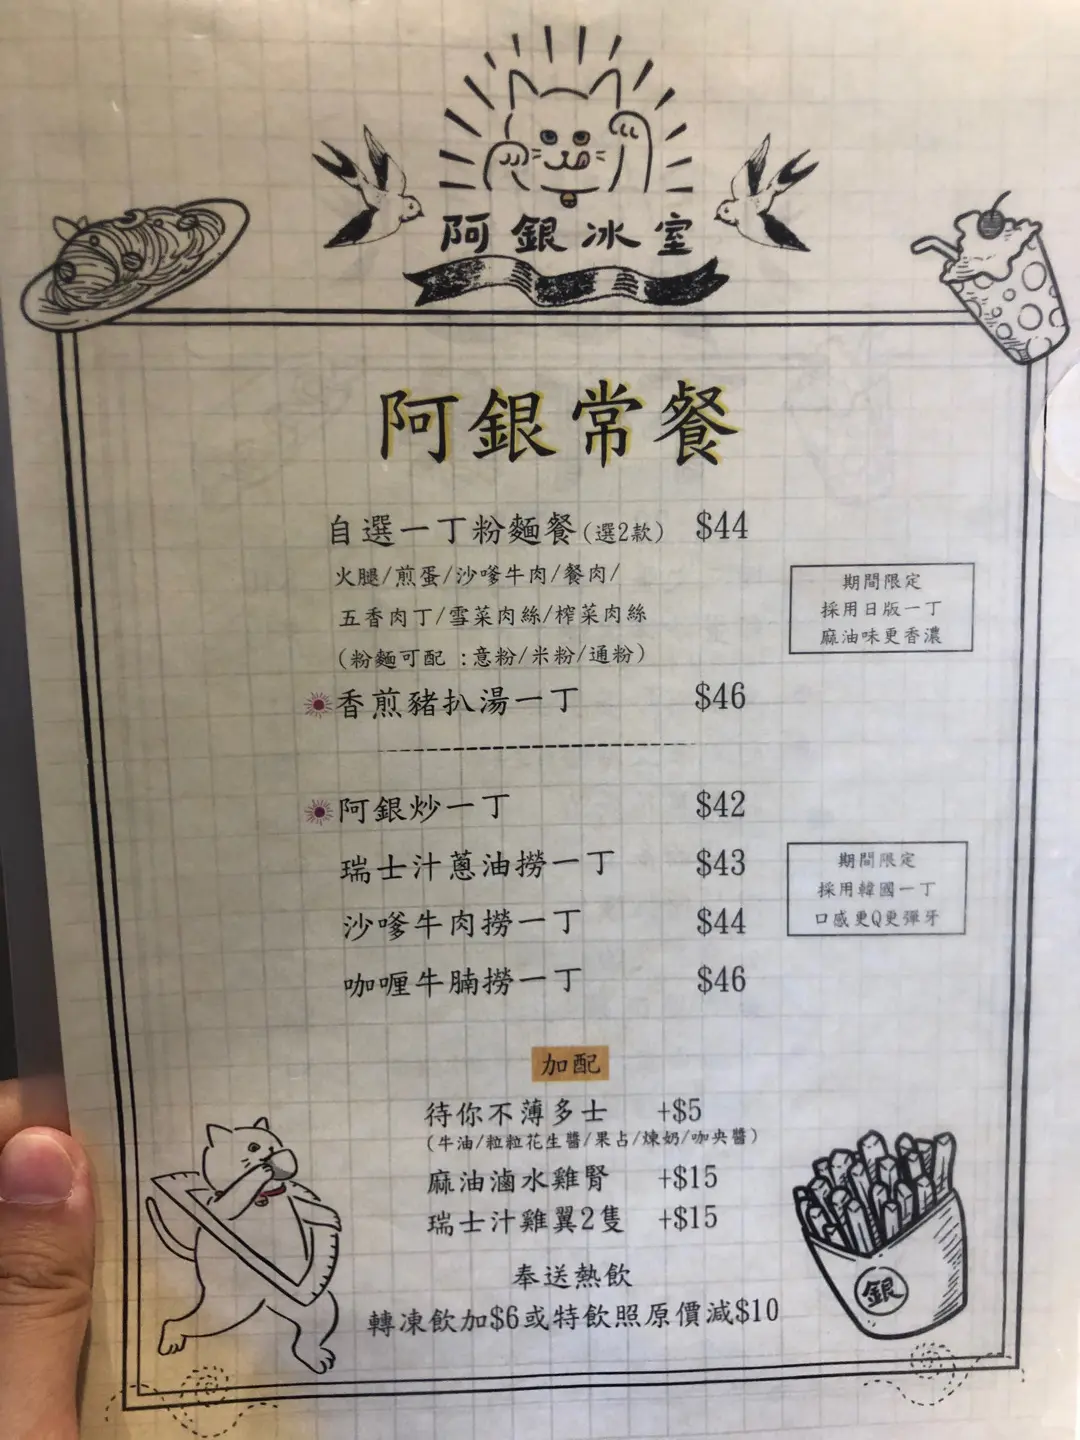 阿銀冰室
阿銀常餐
自選一丁粉麵餐(選2款) $44
火腿/煎蛋/沙嗲牛肉/餐肉/
五香肉丁/雪菜肉絲/榨菜肉絲
(粉麵可配 :意粉/米粉/通粉)
期間限定
採用日版一丁
麻油味更香濃
香煎豬扒湯一丁 $46
阿銀炒一丁 $42
瑞士汁蔥油撈一丁 $43
沙嗲牛肉撈一丁 $44
咖喱牛腩撈一丁 $46
期間限定
採用韓國一丁
口感更Q更彈牙
加配
待你不薄多士 +$5
(牛油/粒粒花生醬/果占/煉奶/咖央醬)
麻油滷水雞腎 +$15
瑞士汁雞翼2隻 +$15
奉送熱飲
轉凍飲加$6或特飲照原價減$10
銀